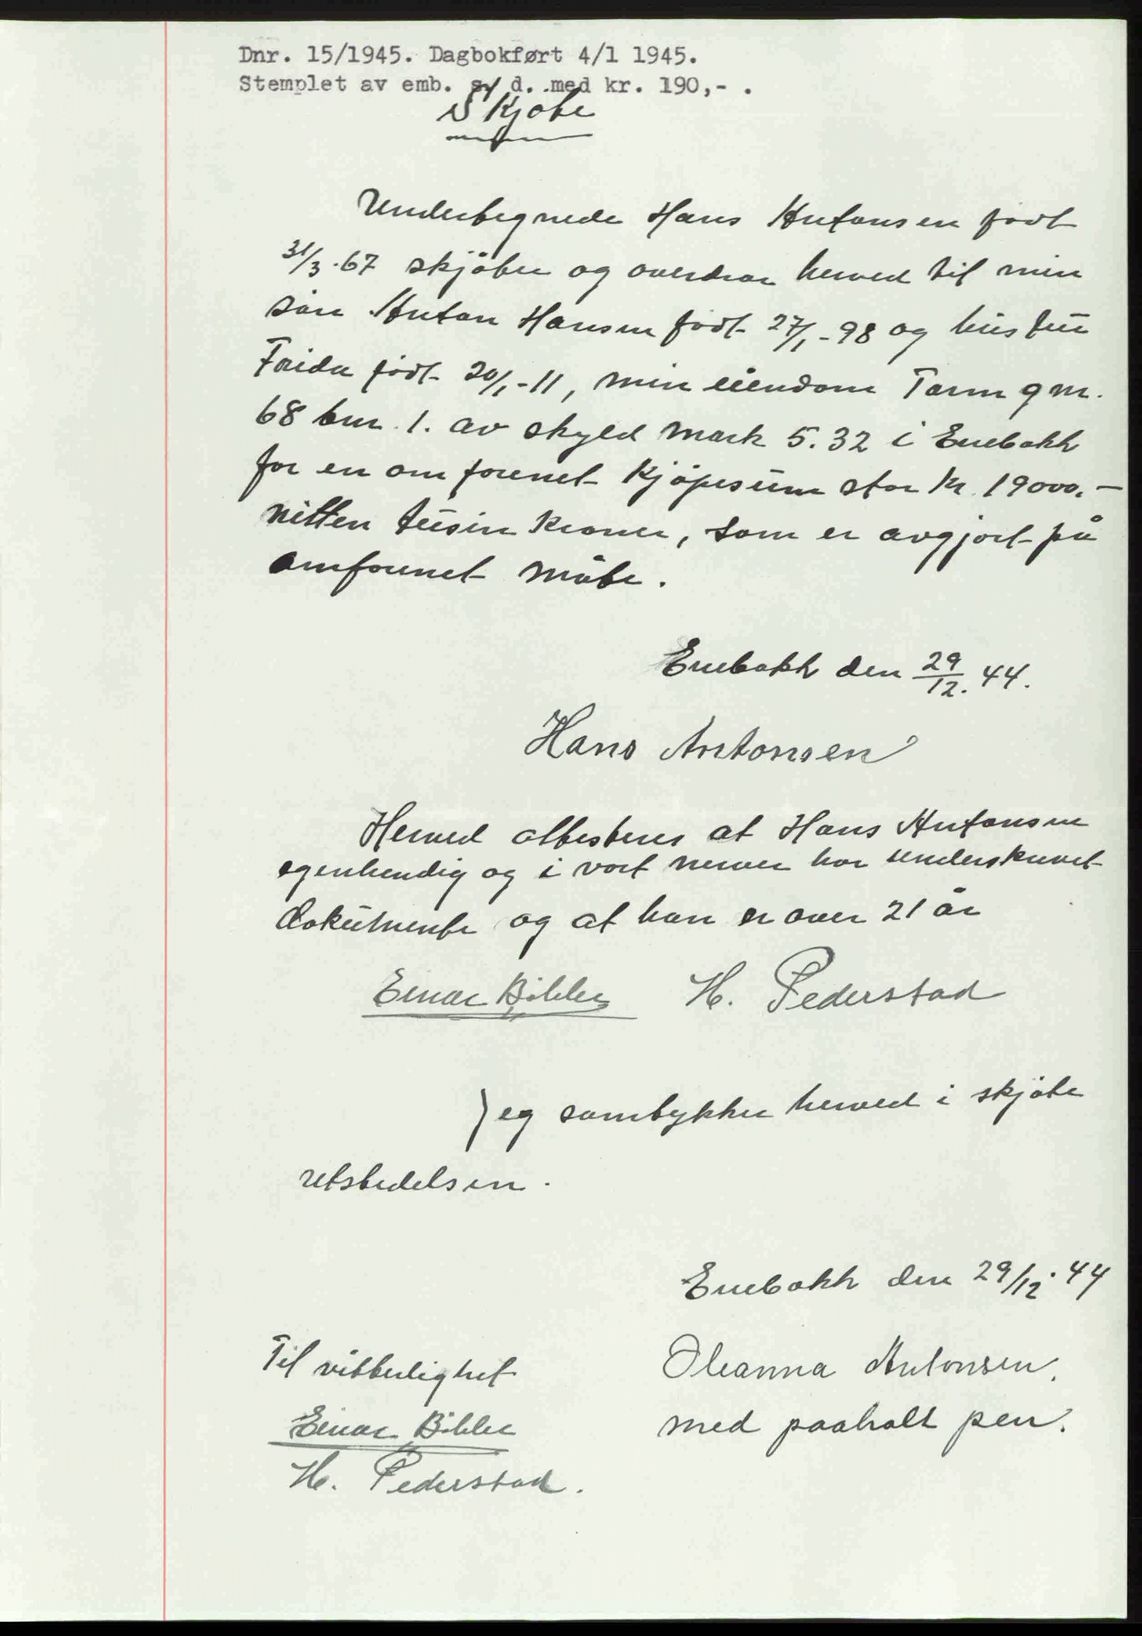 Dnr. 15/1945. Dagbokført 4/1 1945.
Stemplet av emb. s/ d. med kr. 190,- .
Skjøte
Undertegnede Hans Antonsen født
31/3.67 skjøter og overdrar herved til min
søn Anton Hansen født 27/1-98 og hustru
Frida født 20/1-11, min eiendom Tarm gnr.
68 bnr. 1. av skyld mark 5.32 i Enebakk
for en omforenet kjøpesum stor kr. 19000.-
nitten tusin kroner, som er avgjort på
omforenet måte.
Enebakk den 29/12. 44.
Hans Antonsen
Herved attesteres at Hans Antonsen
egenhendig og i vort nerver har underskrevet
dokumente og at han er over 21 år
Einar H. Pederstad
Jeg samtykker herved i skjøte
utstedelsen.
Enebakk den 29/12.44
Til vitterlighet
Oleanna Antonsen.
med paaholt pen.
Einar
H. Pederstad.